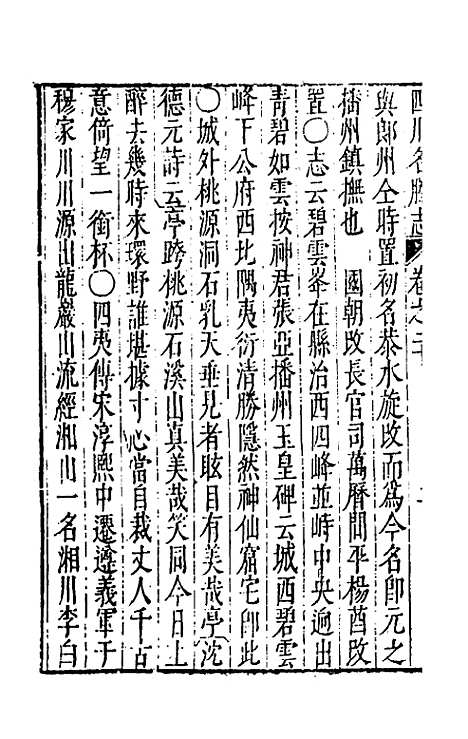 四川名勝志 卷之二十
與郎州仝時置初名恭水旋改而爲今名卽元之
播州鎮撫也 國朝改長官司萬曆間平楊酋改
置〇志云碧雲峯在縣治西四峰並峙中央迥出
青碧如雲按神君張亞播州玉皇碑云城西碧雲
峰下公府西北隅夷衍清勝隱然神仙窟宅卽此
〇城外桃源洞石乳天垂見者眩目有美哉亭沈
德元詩云亭跨桃源石溪山真美哉笑同今日上
醉去幾時來環野誰堪據寸心當自裁丈人千古
意倚望一銜杯〇四夷傳宋淳熙中遷遵義軍于
穆家川川源出龍巖山流經湘山一名湘川李白